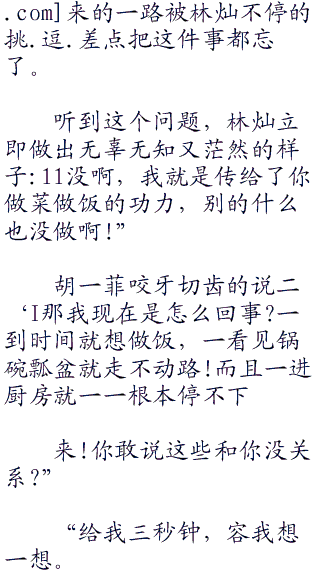 .com]来的一路被林灿不停的
挑.逗.差点把这件事都忘
了。
听到这个问题，林灿立
即做出无辜无知又茫然的样
子:11没啊，我就是传给了你
做菜做饭的功力，别的什么
也没做啊!”
胡一菲咬牙切齿的说二
‘I那我现在是怎么回事?一
到时间就想做饭，一看见锅
碗瓢盆就走不动路!而且一进
厨房就一一根本停不下
来!你敢说这些和你没关
系?”
“给我三秒钟，容我想
一想。